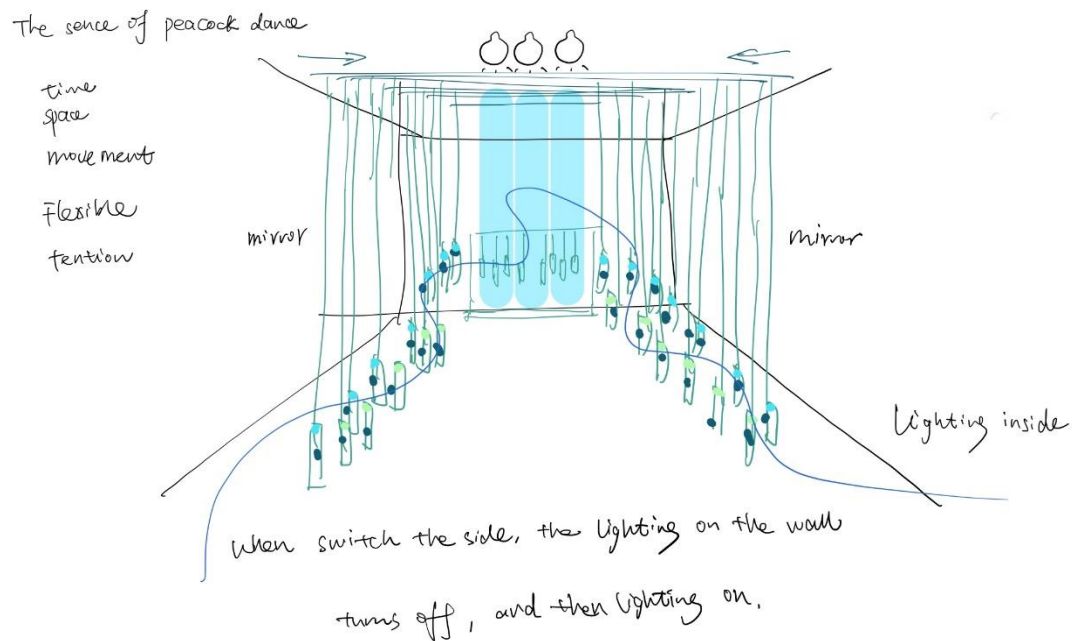 The sence of peacock dance
time
space
movement
Flexible
tention
mirror
mirror
Lighting inside
when switch the side, the lighting on the wall
turns off, and then lighting on.